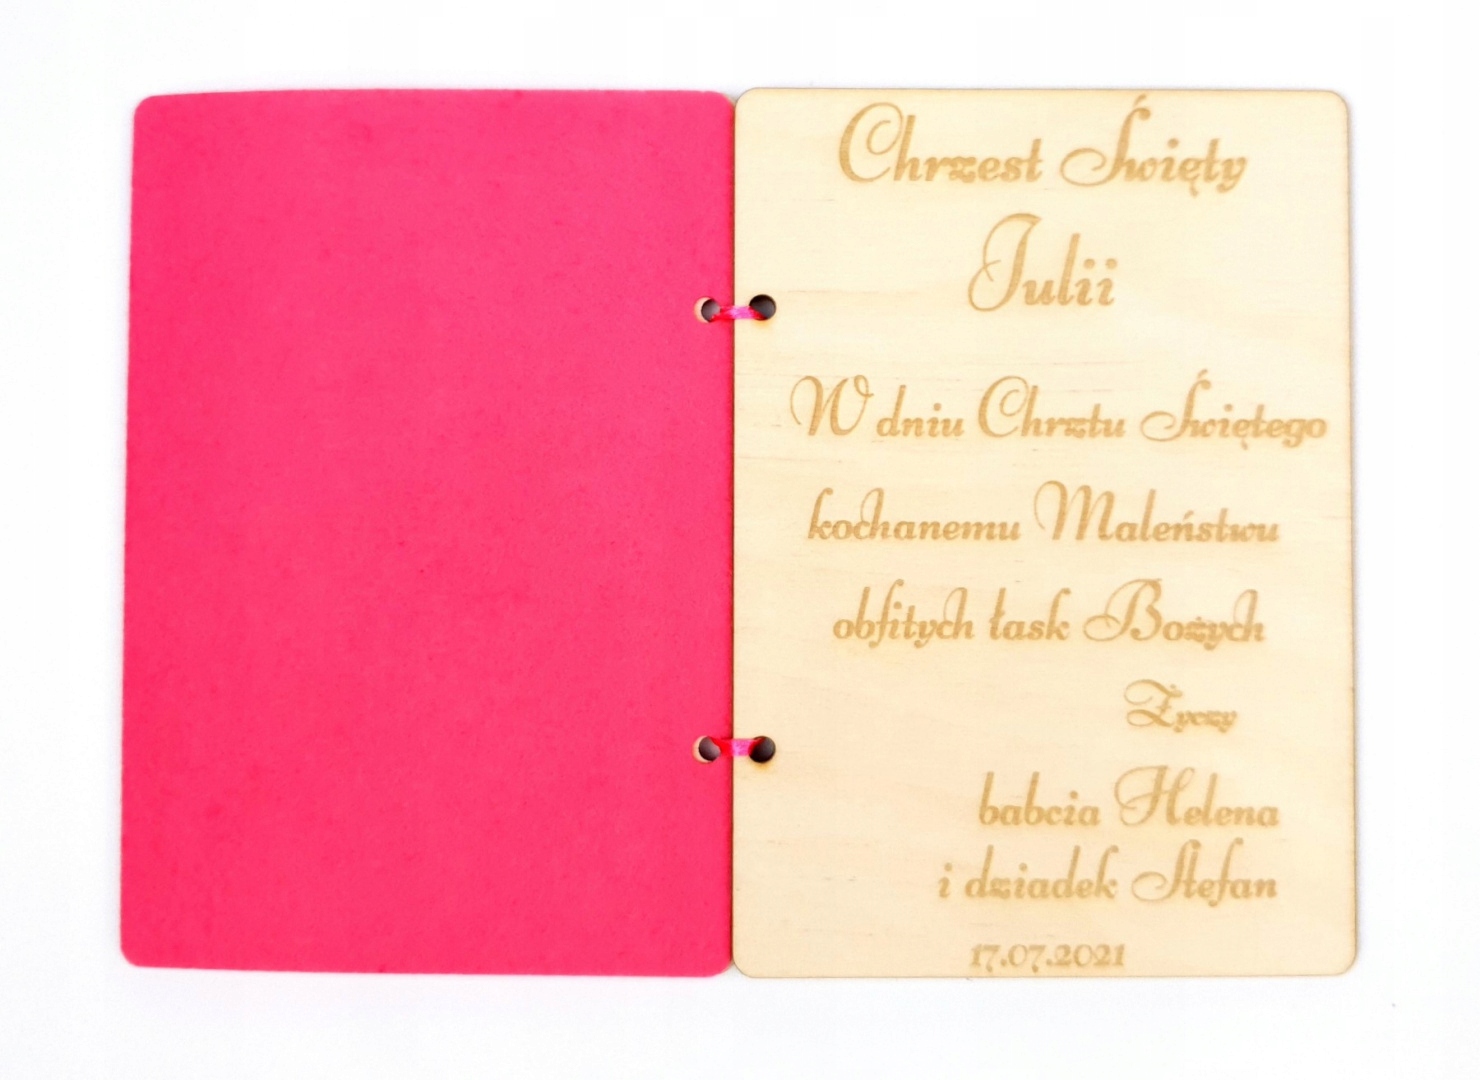 Chrzest Święty
Julii
W dniu Chrztu Świętego
kochanemu Maleństwu
obfitych łask Bożych
Życzy
babcia Helena
i dziadek Stefan
17.07.2021